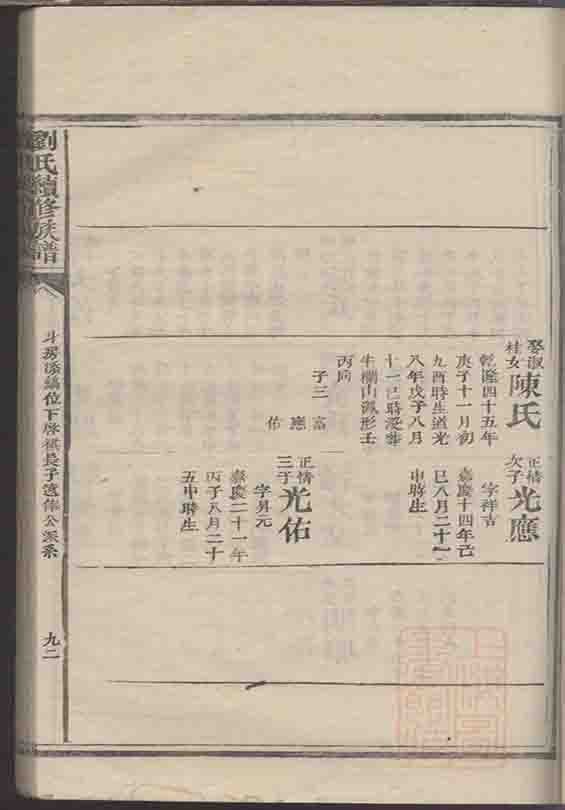 劉氏續修族譜
斗房添緝位下啓祺長子遠偉公派系
九二
娶淑桂女陳氏
乾隆四十五年
庚子十一月初
九酉時生道光
八年戊子八月
十一己時歿葬
牛欄山獅形壬
丙向
子三
富應佑
正情次子光應
字祥吉
嘉慶十四年己
巳八月二十一
申時生
正情三子光佑
字昇元
嘉慶二十一年
丙子八月二十
五申時生